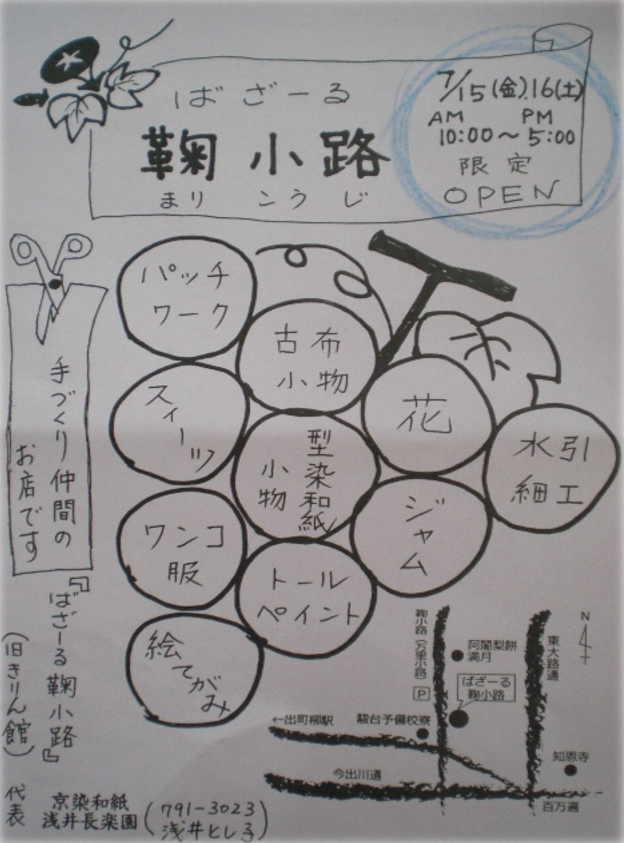 ばざーる
鞠小路
まりこうじ
7/15(金).16(土)
AM PM
10:00～5:00
限定
OPEN
手づくり仲間の
お店です
パッチ
ワーク
古布
小物
スィーツ
花
型染和紙
小物
水引
細工
ワンコ
服
ジャム
トール
ペイント
絵てがみ
『ばざーる鞠小路』
(旧きりん館)
代表
京染和紙
浅井長楽園
(791-3023
浅井とし子)
鞠小路(万里小路)
P
阿闍梨餅
満月
ばざーる
鞠小路
東大路通
N
←出町柳駅
駿台予備校寮
今出川通
知恩寺
百万遍